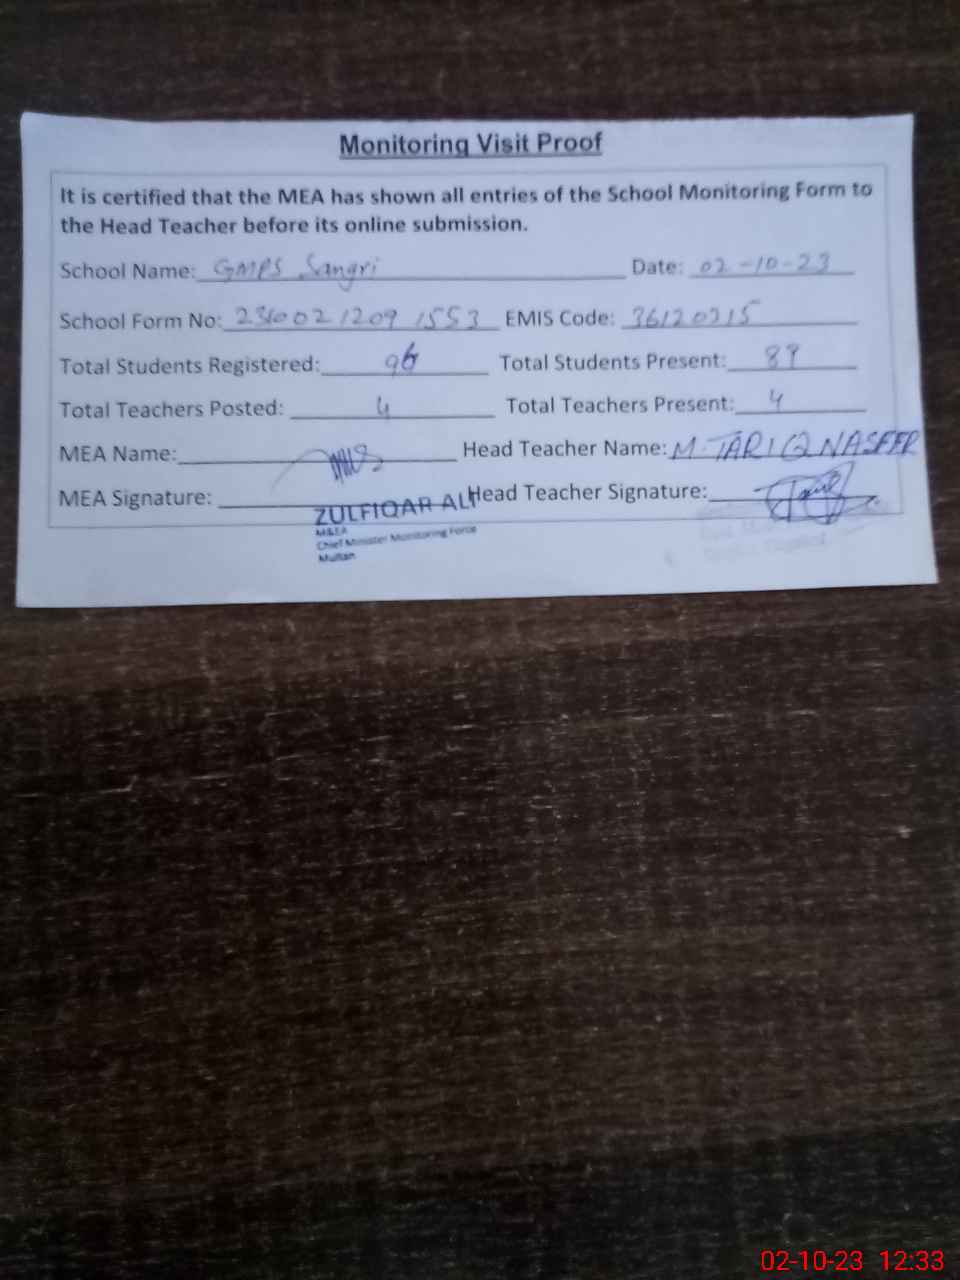 Monitoring Visit Proof
It is certified that the MEA has shown all entries of the School Monitoring Form to
the Head Teacher before its online submission.
School Name: GMPS Sangri Date: 02-10-23
School Form No: EMIS Code: 36120315
Total Students Registered: 96 Total Students Present: 89
Total Teachers Posted: 4 Total Teachers Present: 4
MEA Name: Head Teacher Name: M. TARIQ NASEER
MEA Signature: Head Teacher Signature:
ZULFIQAR ALI
M&EA
Chief Minister Monitoring Force
Multan
02-10-23 12:33